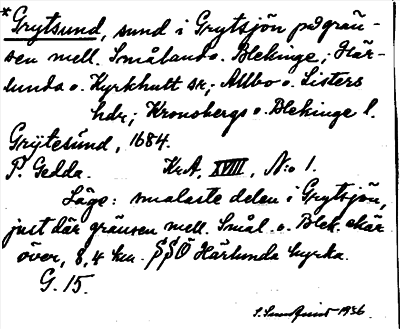 *Grytsund, sund i Grytsjön på grän-
sen mell. Småland o. Blekinge; Här-
lunda o. Kyrkhult sr; Allbo o. Listers
hdr; Kronobergs o. Blekinge l.
Grÿtesund, 1684.
P. Gedda. KrA, XVIII, N:o 1.
Läge: smalaste delen i Grytsjön,
just där gränsen mell. Smål. o. Blek. skär
över, 8,4 km. SSÖ Härlunda kyrka.
G. 15.
1936